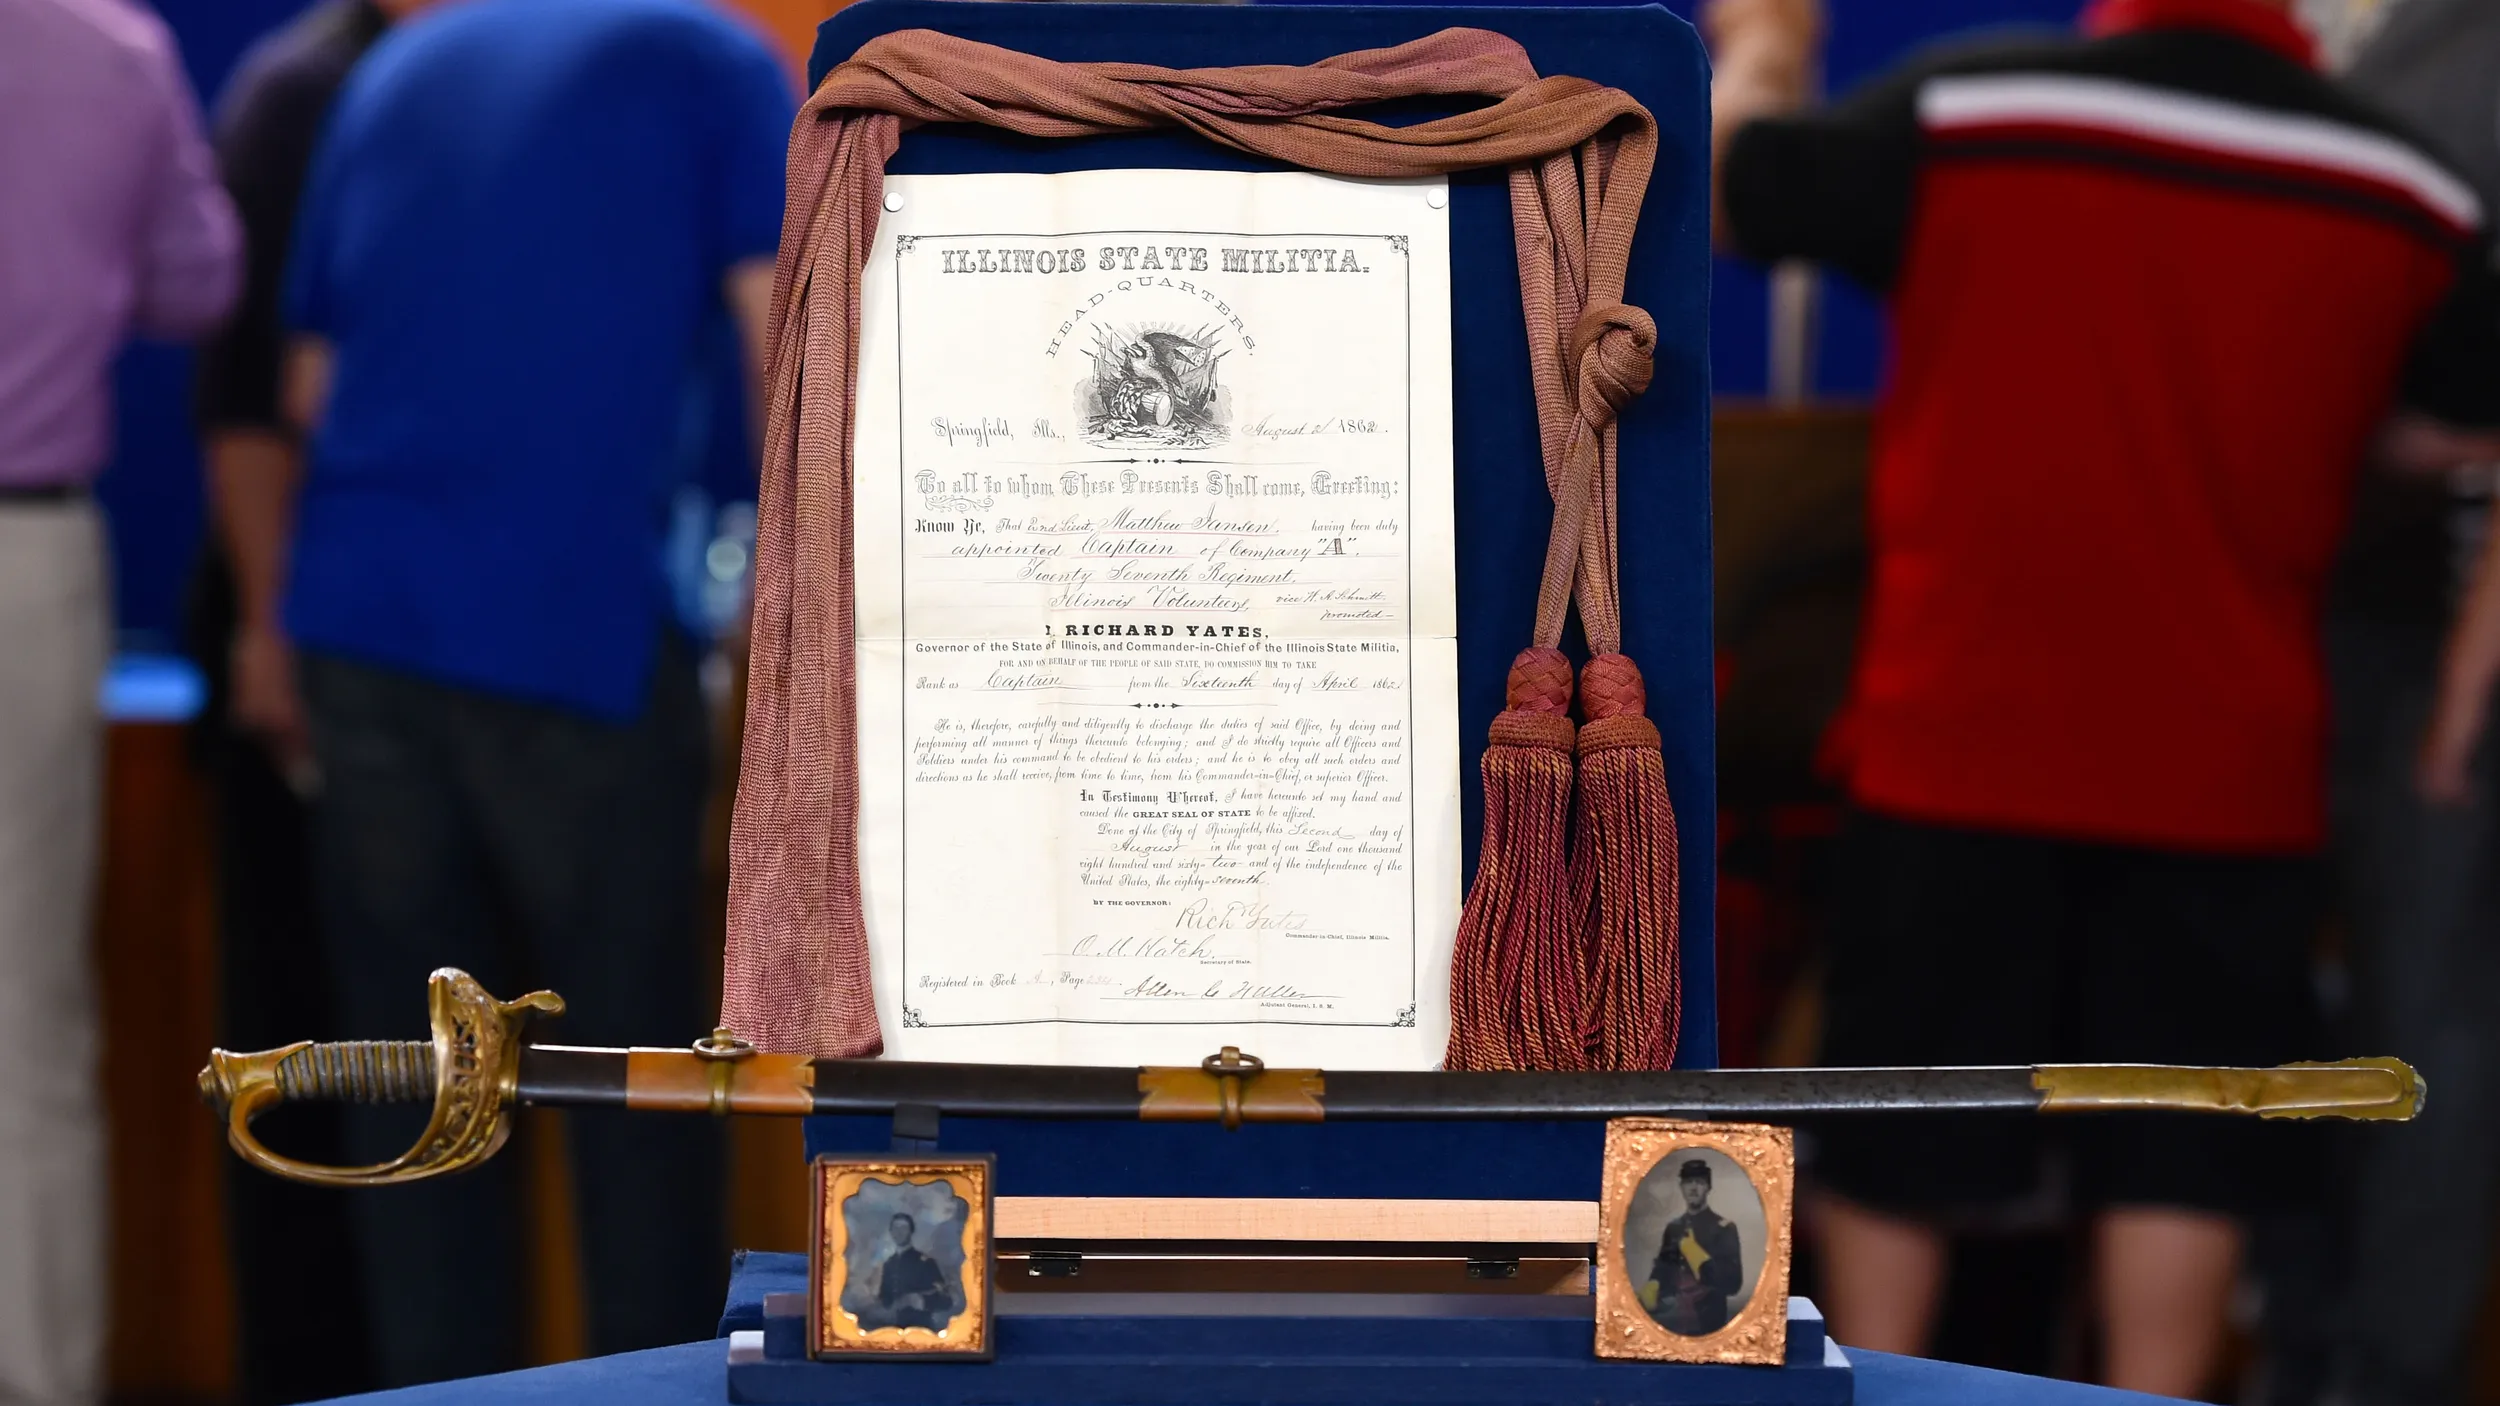 ILLINOIS STATE MILITIA.
HEAD-QUARTERS.
Springfield, Ills., August 2d 1862.
To all to whom These Presents Shall come, Greeting:
Know Ye, That 2nd Lieut, Matthew Jansen, having been duly
appointed Captain of Company "A".
Twenty Seventh Regiment.
Illinois Volunteers, vice H. A. Schmitt.
promoted—
I, RICHARD YATES,
Governor of the State of Illinois, and Commander-in-Chief of the Illinois State Militia,
FOR AND ON BEHALF OF THE PEOPLE OF SAID STATE, DO COMMISSION HIM TO TAKE
Rank as Captain from the Sixteenth day of April 1862.
He is, therefore, carefully and diligently to discharge the duties of said Office, by doing and
performing all manner of things thereunto belonging; and I do strictly require all Officers and
Soldiers under his command to be obedient to his orders; and he is to obey all such orders and
directions as he shall receive, from time to time, from his Commander-in-Chief, or superior Officer.
In Testimony Whereof, I have hereunto set my hand and
caused the GREAT SEAL OF STATE to be affixed.
Done at the City of Springfield, this Second day of
August in the year of our Lord one thousand
eight hundred and sixty-two- and of the independence of the
United States, the eighty-seventh.
BY THE GOVERNOR:
Richd Yates
Commander-in-Chief, Illinois Militia.
O. M. Hatch.
Secretary of State.
Registered in Book A, Page
Allen C. Fuller
Adjutant General, I. S. M.